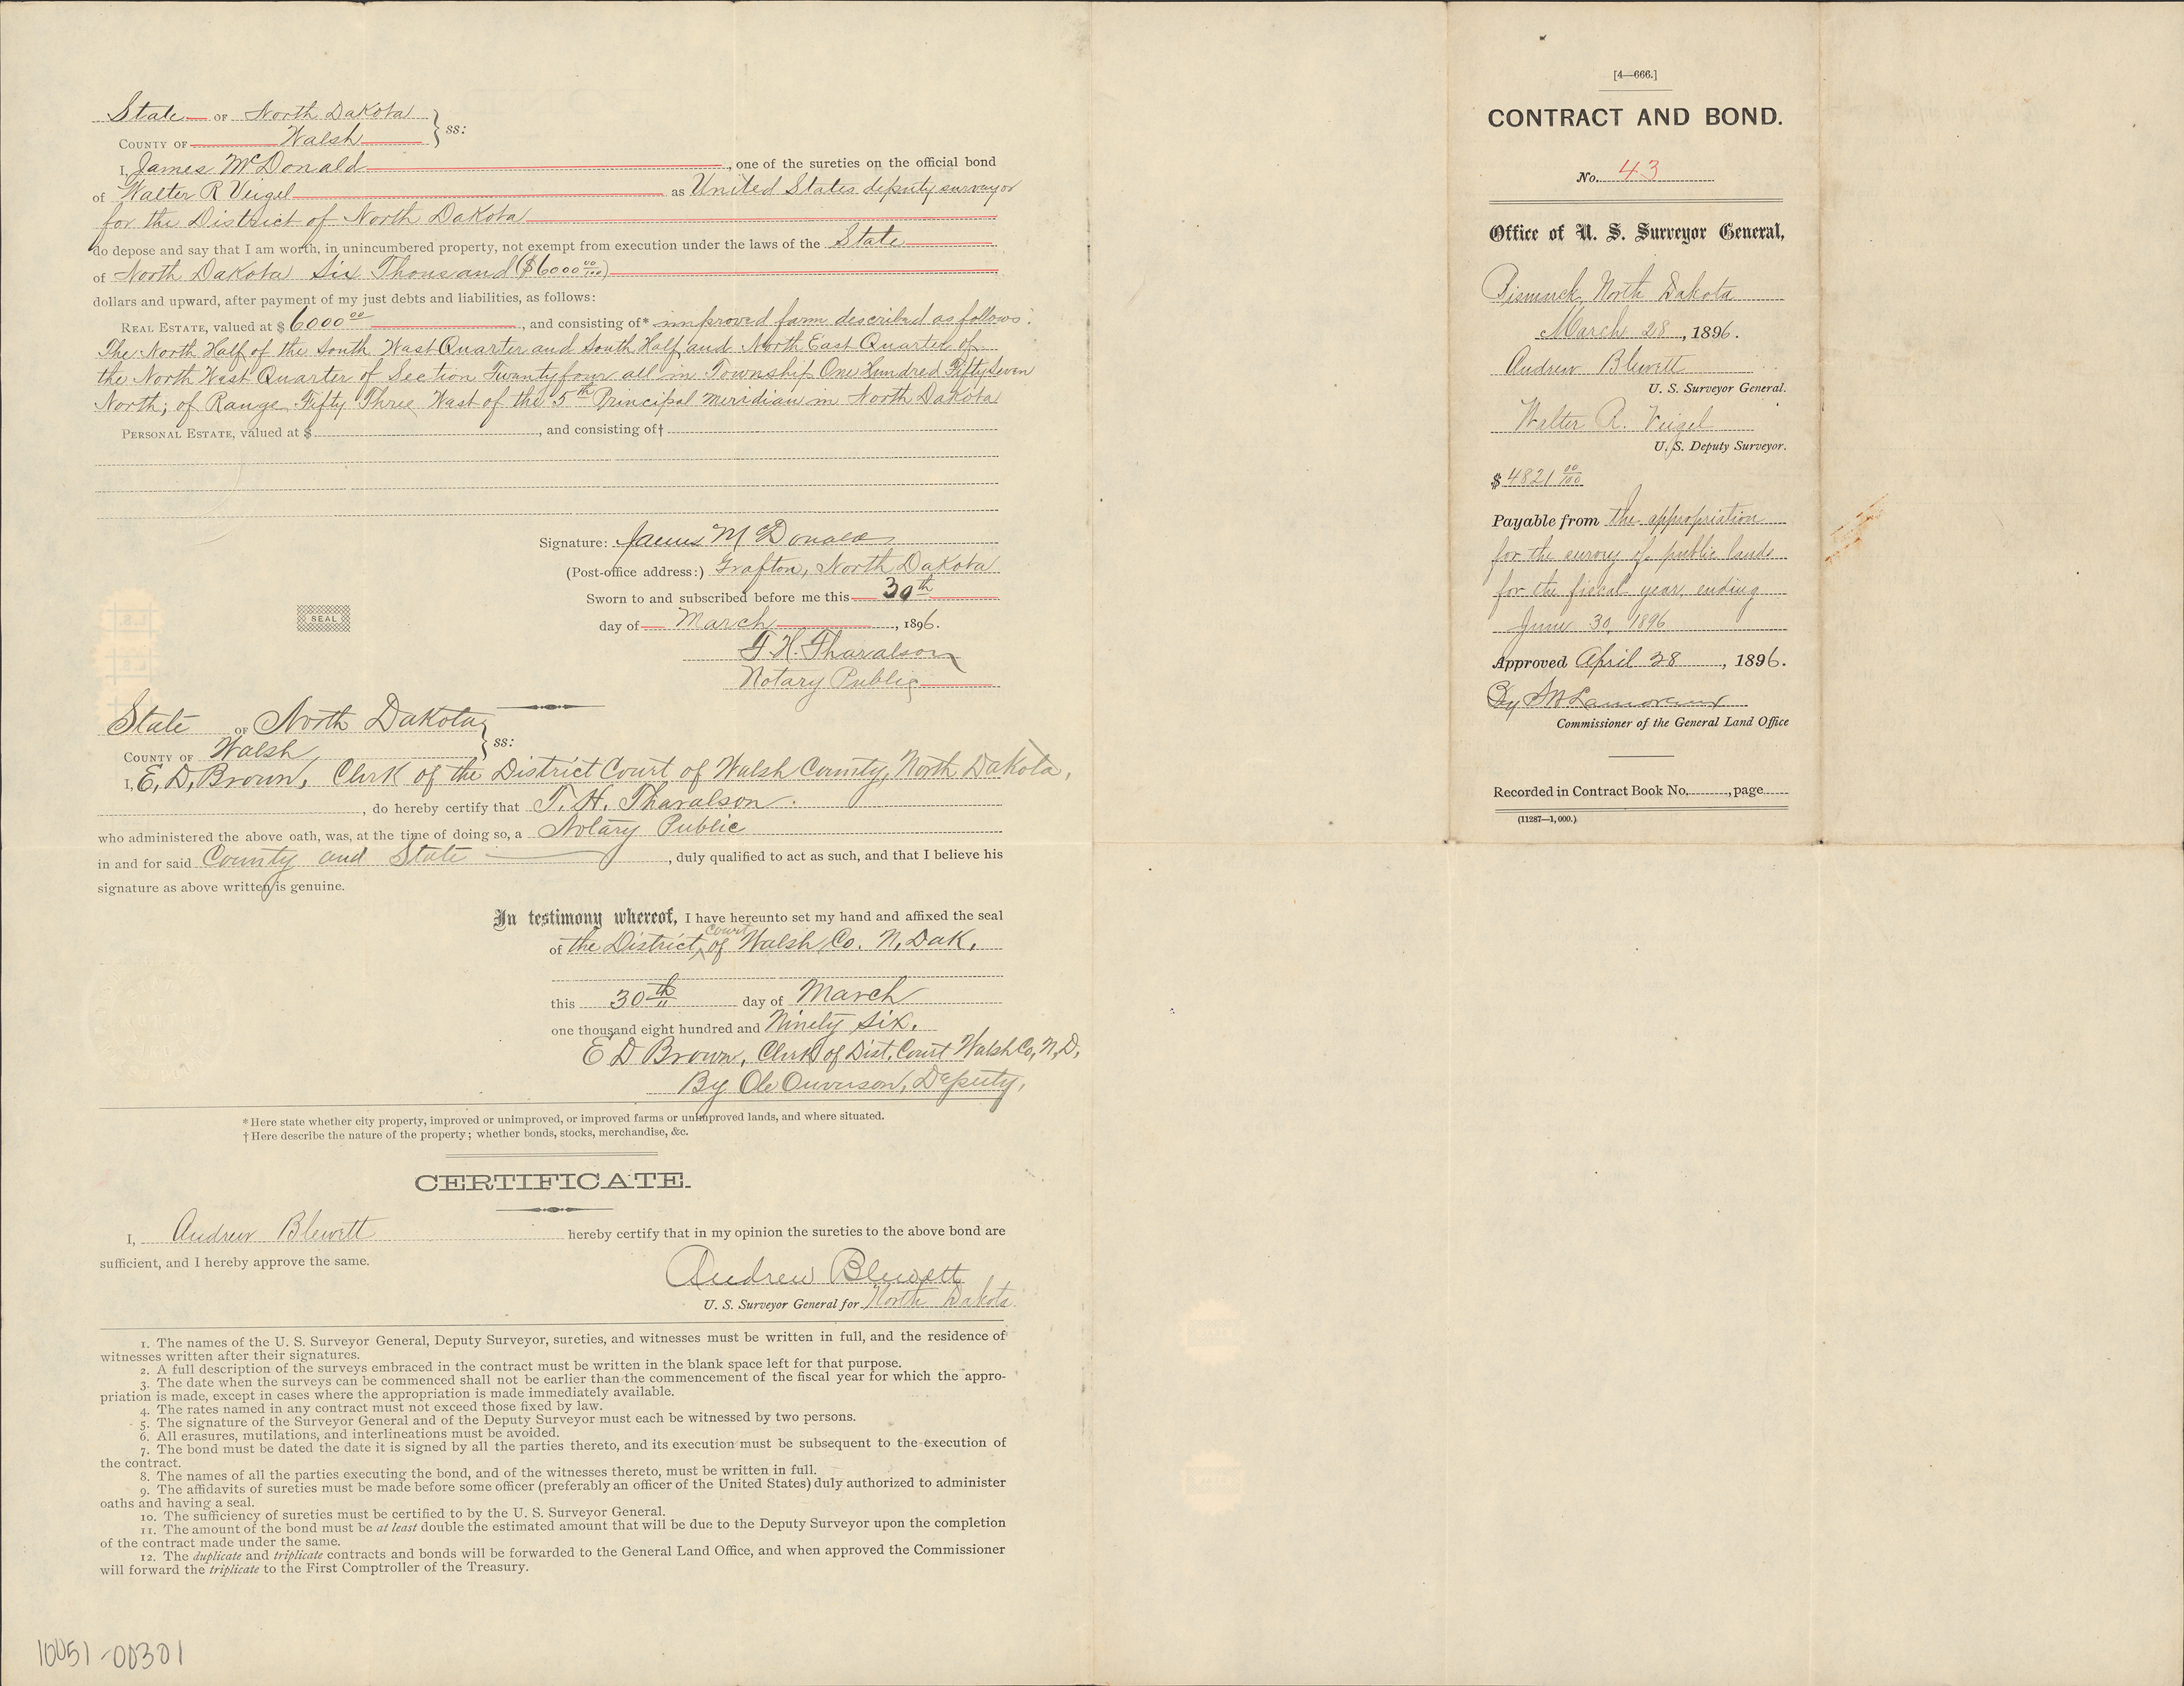 State of North Dakota
County of Walsh } ss:
I, James McDonald, one of the sureties on the official bond
of Walter R Veigel as United States deputy surveyor
for the District of North Dakota
do depose and say that I am worth, in unincumbered property, not exempt from execution under the laws of the State
of North Dakota Six Thousand ($6000 00/100)
dollars and upward, after payment of my just debts and liabilities, as follows:
Real Estate, valued at $ 6000 00, and consisting of* improved farm described as follows:
The North Half of the South West Quarter and South Half and North East Quarter of
the North West Quarter of Section Twenty four all in Township One Hundred Fifty Seven
North; of Range Fifty Three West of the 5th Principal Meridian in North Dakota
Personal Estate, valued at $, and consisting of†
Signature: James McDonald
(Post-office address:) Grafton, North Dakota
Sworn to and subscribed before me this 30th
SEAL
day of March, 1896.
T. H. Tharalson
Notary Public
State of North Dakota
County of Walsh } ss:
I, E. D. Brown, Clerk of the District Court of Walsh County, North Dakota,
, do hereby certify that T. H. Tharalson.
who administered the above oath, was, at the time of doing so, a Notary Public
in and for said County and State, duly qualified to act as such, and that I believe his
signature as above written is genuine.
In testimony whereof, I have hereunto set my hand and affixed the seal
of the District Court of Walsh Co. N. Dak.
this 30th day of March
one thousand eight hundred and Ninety six.
E D Brown, Clerk of Dist. Court Walsh Co, N, D,
By Ole Ouverson, Deputy,
* Here state whether city property, improved or unimproved, or improved farms or unimproved lands, and where situated.
† Here describe the nature of the property; whether bonds, stocks, merchandise, &c.
CERTIFICATE.
I, Andrew Blewett hereby certify that in my opinion the sureties to the above bond are
sufficient, and I hereby approve the same.
Andrew Blewett
U. S. Surveyor General for North Dakota
1. The names of the U. S. Surveyor General, Deputy Surveyor, sureties, and witnesses must be written in full, and the residence of
witnesses written after their signatures.
2. A full description of the surveys embraced in the contract must be written in the blank space left for that purpose.
3. The date when the surveys can be commenced shall not be earlier than the commencement of the fiscal year for which the appro-
priation is made, except in cases where the appropriation is made immediately available.
4. The rates named in any contract must not exceed those fixed by law.
5. The signature of the Surveyor General and of the Deputy Surveyor must each be witnessed by two persons.
6. All erasures, mutilations, and interlineations must be avoided.
7. The bond must be dated the date it is signed by all the parties thereto, and its execution must be subsequent to the execution of
the contract.
8. The names of all the parties executing the bond, and of the witnesses thereto, must be written in full.
9. The affidavits of sureties must be made before some officer (preferably an officer of the United States) duly authorized to administer
oaths and having a seal.
10. The sufficiency of sureties must be certified to by the U. S. Surveyor General.
11. The amount of the bond must be at least double the estimated amount that will be due to the Deputy Surveyor upon the completion
of the contract made under the same.
12. The duplicate and triplicate contracts and bonds will be forwarded to the General Land Office, and when approved the Commissioner
will forward the triplicate to the First Comptroller of the Treasury.
10051-00301
[4—666.]
CONTRACT AND BOND.
No. 43
Office of U. S. Surveyor General,
Bismarck, North Dakota
March 28, 1896.
Andrew Blewett
U. S. Surveyor General.
Walter R. Veigel
U. S. Deputy Surveyor.
$ 4821 00/100
Payable from the appropriation
for the survey of public lands
for the fiscal year, ending
June 30, 1896
Approved April 28, 1896.
SW Lamoreux
Commissioner of the General Land Office
Recorded in Contract Book No. , page
(11287—1,000.)